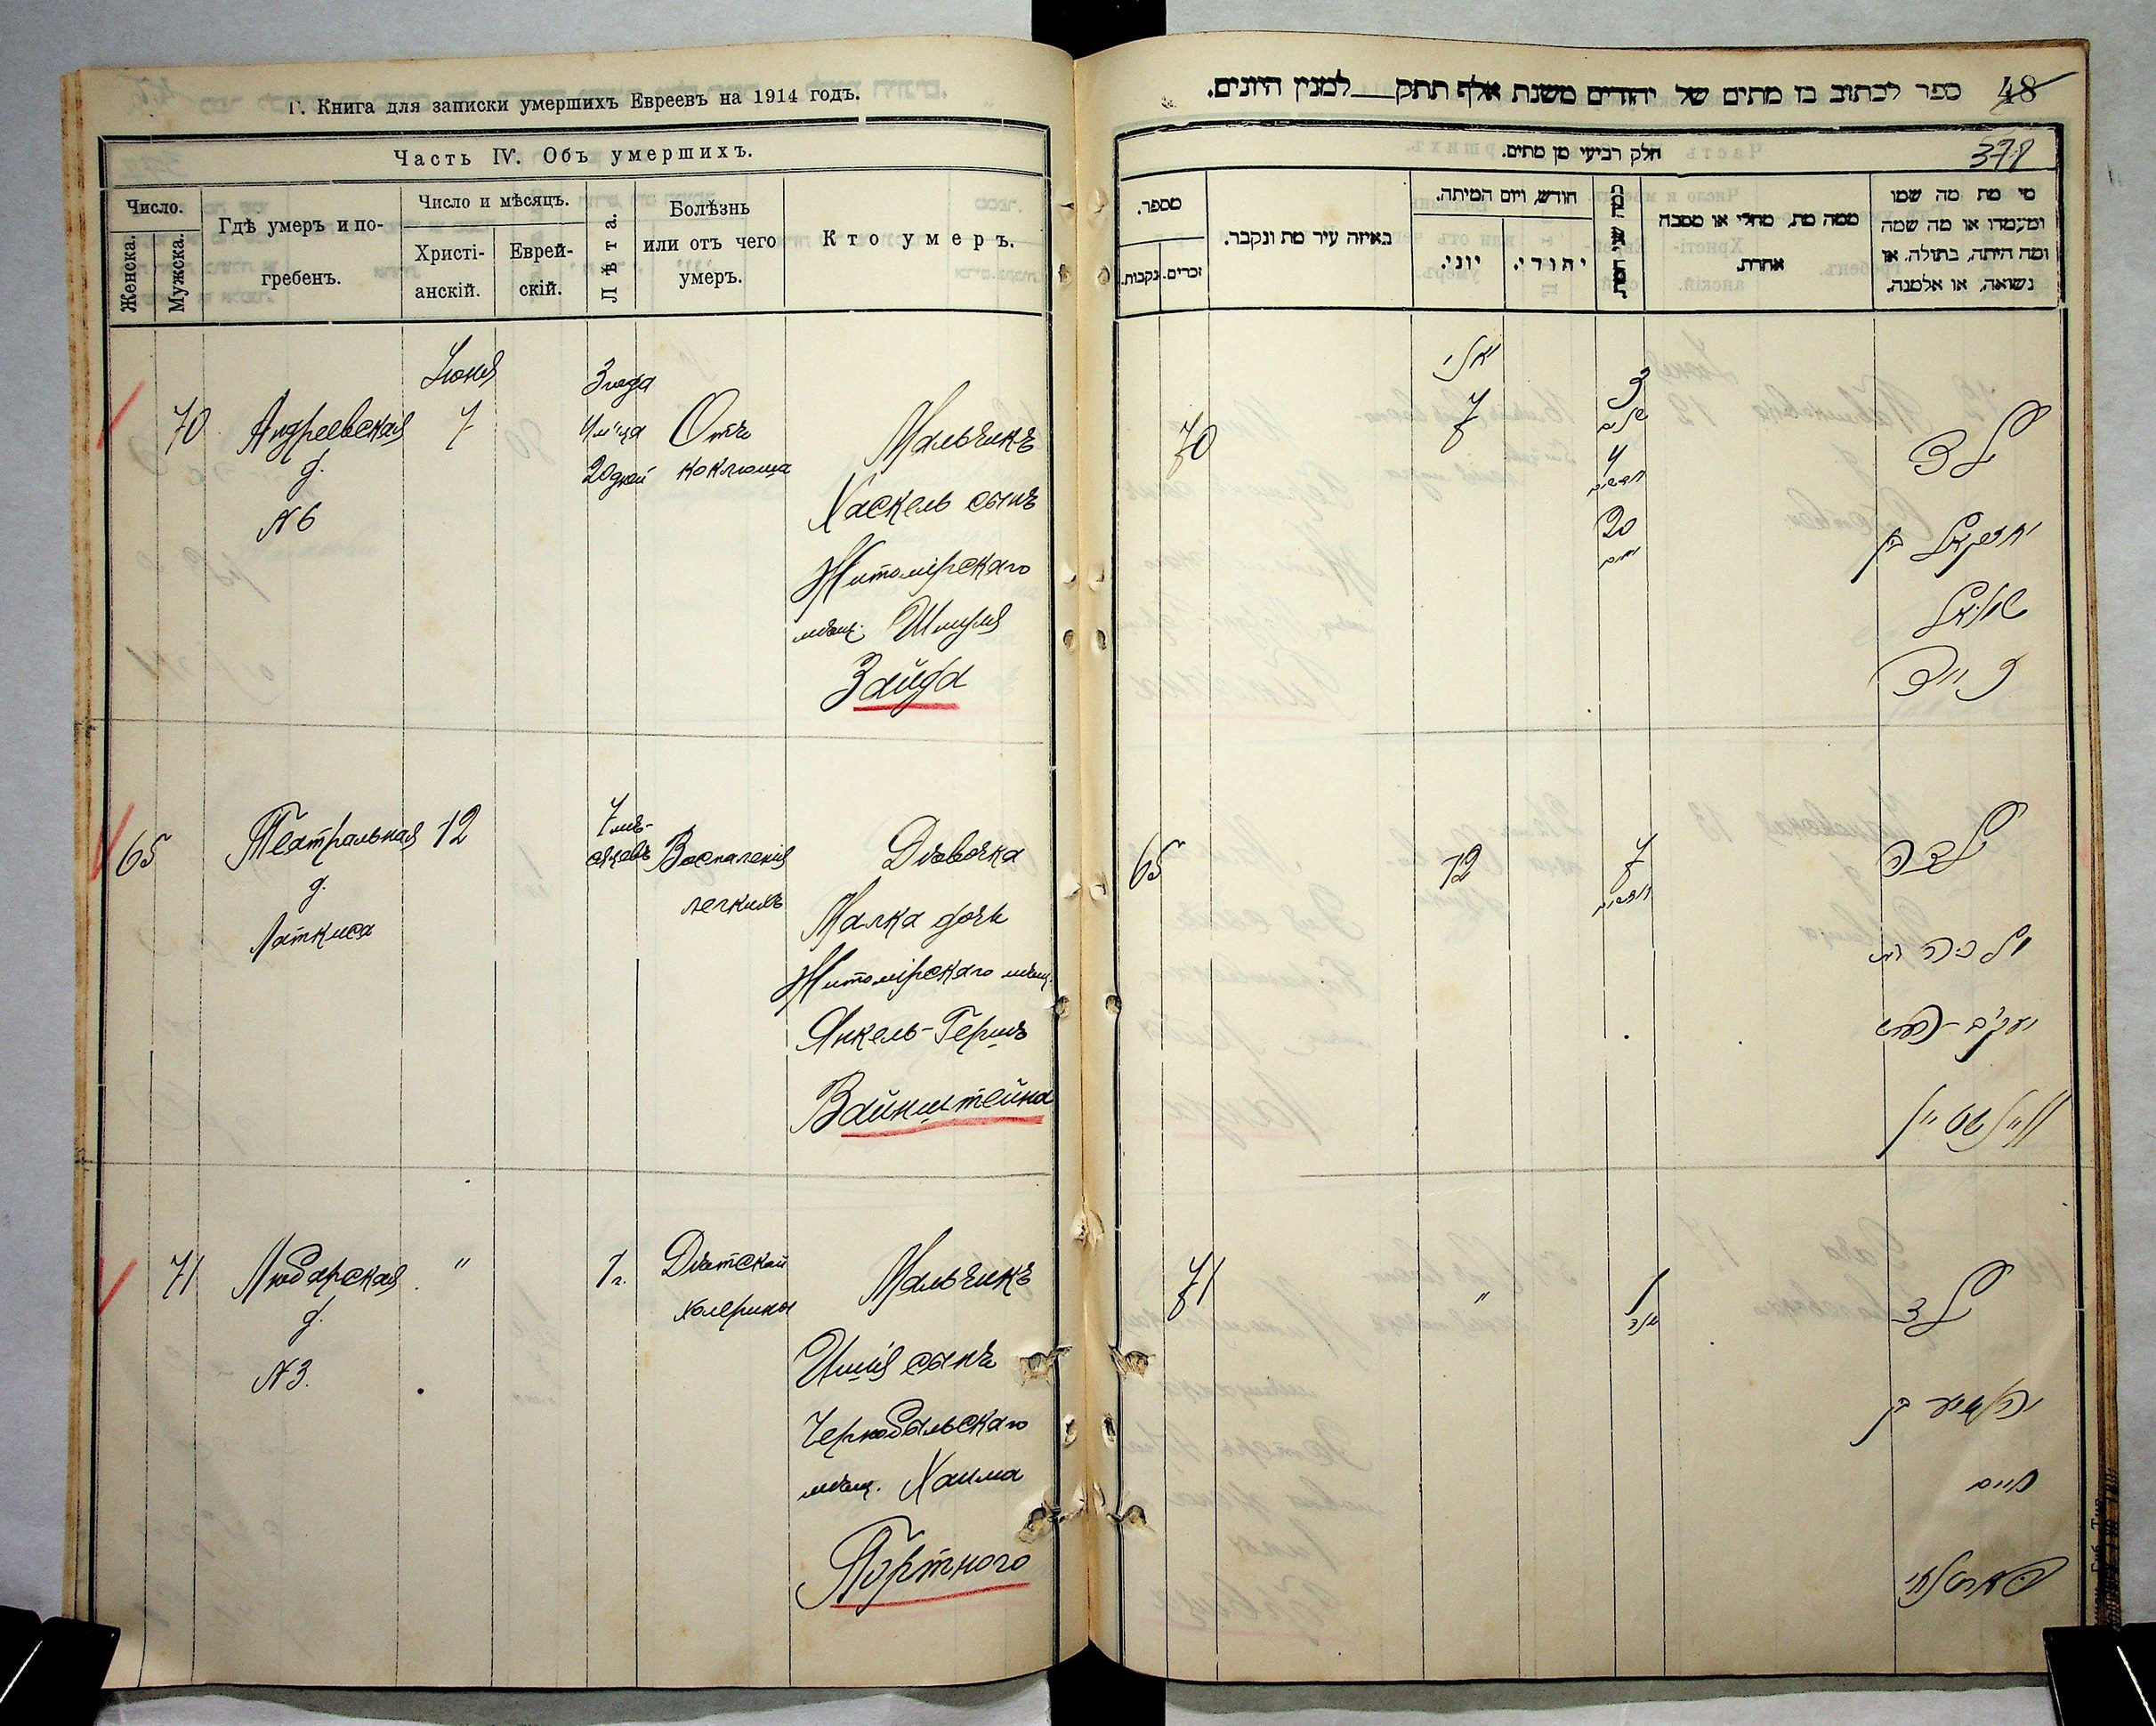 Г. Книга для записки умершихъ Евреевъ на 1914 годъ.
Часть IV. Объ умершихъ.
Число.
Женска.
Мужска.
Гдѣ умеръ и по-
гребенъ.
Число и мѣсяцъ.
Христі-
анскій.
Еврей-
скій.
Лѣта.
Болѣзнь
или отъ чего
умеръ.
Кто умеръ.
70
Андреевская
д.
№ 6
Іюня
7
3 года
4 м-ца
20 дней
Отъ
коклюша
Мальчикъ
Хаскель сынъ
Житомірскаго
мѣщ. Шмуля
Зайда
65
Театральная
д.
Латкиса
12
7 мѣ-
сяцевъ
Воспаленія
легкихъ
Дѣвочка
Малка дочь
Житомірскаго мѣщ.
Янкель-Герша
Вайнштейна
71
Любарская
д.
№ 3.
"
1 г.
Дѣтской
холерины
Мальчикъ
Ишія сынъ
Чернобыльскаго
мѣщ. Хаима
Портного
48
ספר לכתוב בו מתים של יהודים משנת אלף תתק למנין היונים.
378
חלק רביעי מן מתים.
מספר.
זכרים.
נקבות.
באיזה עיר מת ונקבר.
חודש, ויום המיתה.
יוני.
יהודי.
ממה מת, מחלי או מסבה
אחרת.
מי מת מה שמו
ומעמדו או מה שמה
ומה היתה, בתולה, או
נשואה, או אלמנה.
70
7
3
שנים
4
חדשים
20
ימים
ילד
יחזקאל בן
שמואל
זייד
65
12
7
חדשים
ילדה
מלכה בת
יעקב-הרש
וויינשטיין
71
"
1
שנה
ילד
יהושע בן
חיים
פארטנאי